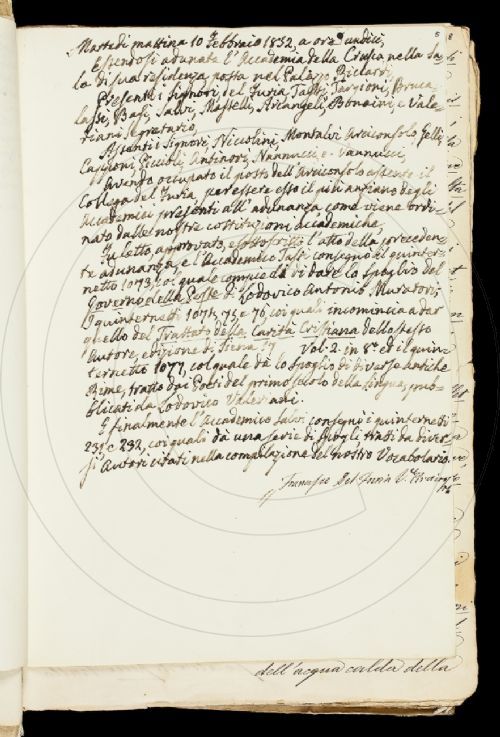 8 8
Martedì mattina 10 Febbraio 1832, a ore undici,
Essendosi adunata l'Accademia della Crusca nella Sa-
la di sua residenza posta nel Palazzo Riccardi,
Presenti i Signori, del Furia, Targioni, Bruca-
lassi, Basi, Salvi, Masselli, Arcangeli, Bonaini, e Vale-
riani Segretario,
Assenti i Signori, Niccolini, Montalvi Arciconsolo, Gelli,
Capponi, Antinori, Nannucci, e Vannucci,
Avendo occupato il posto dell'Arciconsolo assente il
Collega del Furia per essere esso il più anziano degli
Accademici presenti all'adunanza come viene ordi-
nato dalle nostre costituzioni accademiche,
Fu letto, approvato, e sottoscritto l'atto della preceden-
te adunanza, e l'Accademico consegnò il quinter-
netto 1073, col quale compiè di dare lo spoglio del
Governo della Peste di Lodovico Antonio Muratori;
I quinternetti 1074, 75, e 76, coi quali incomincia a dar
quello del Trattato della Carità Cristiana dello stesso
Autore, edizione di Siena Vol. 2 in 8º ed il quin-
ternetto 1077, col quale dà lo spoglio di diverse antiche
Rime, tratto dai Poeti del primo secolo della lingua, pub-
blicati da Lodovico Valeriani.
E finalmente l'Accademico Salvi consegnò i quinternetti
231, e 232, coi quali dà una serie di spogli tratti da diver-
si Autori citati nella compilazione del nostro Vocabolario.
Francesco Del Furia
dell'acqua calda della